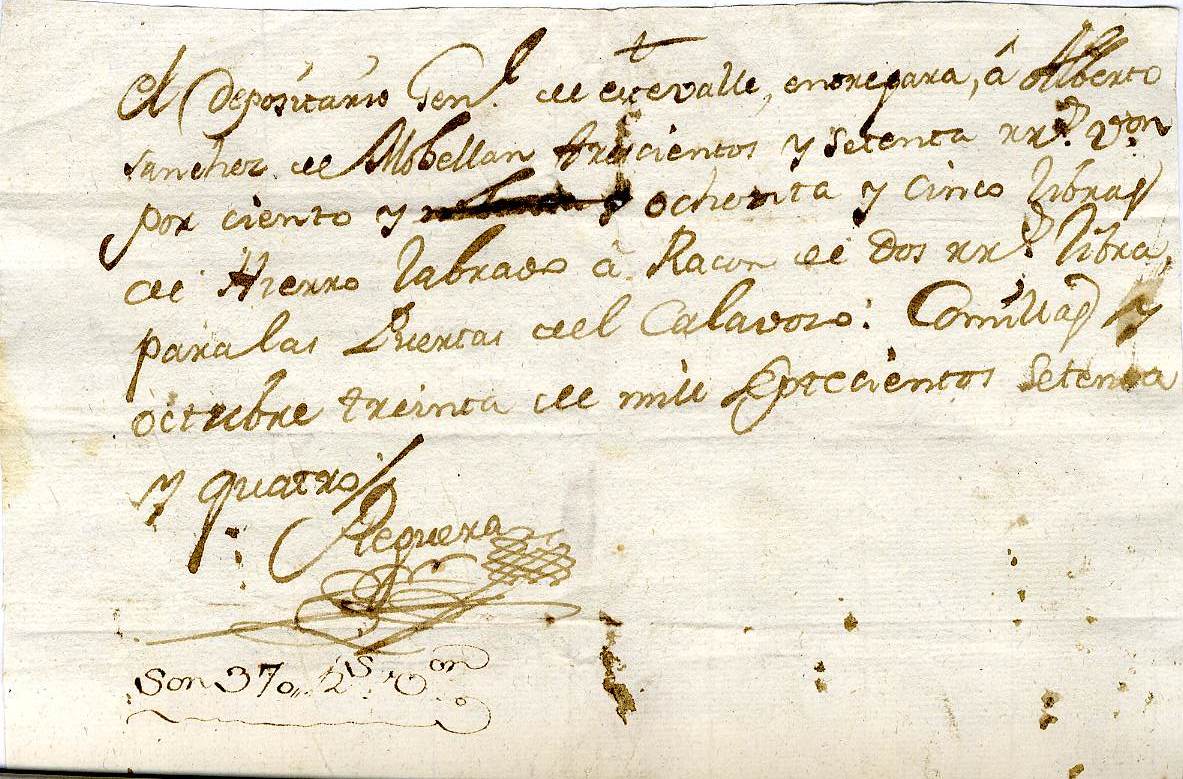 El Depositario Gen.l de este valle, entregara, â Alberto
sanchez de Mobellan trescientos y setenta rr.s v.on
por ciento y ochenta y cinco libras
de Hierro labrado â Racon de dos rr.s libra,
para las Puertas del Calavozo: Comillas y
octubre treinta de mill septecientos setenta
y quatro
Reguera
Son 370 rs v.on